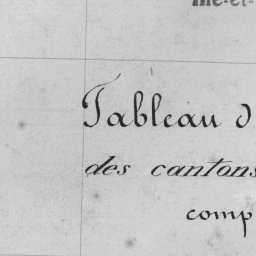 Tableau d
des cantons
comp